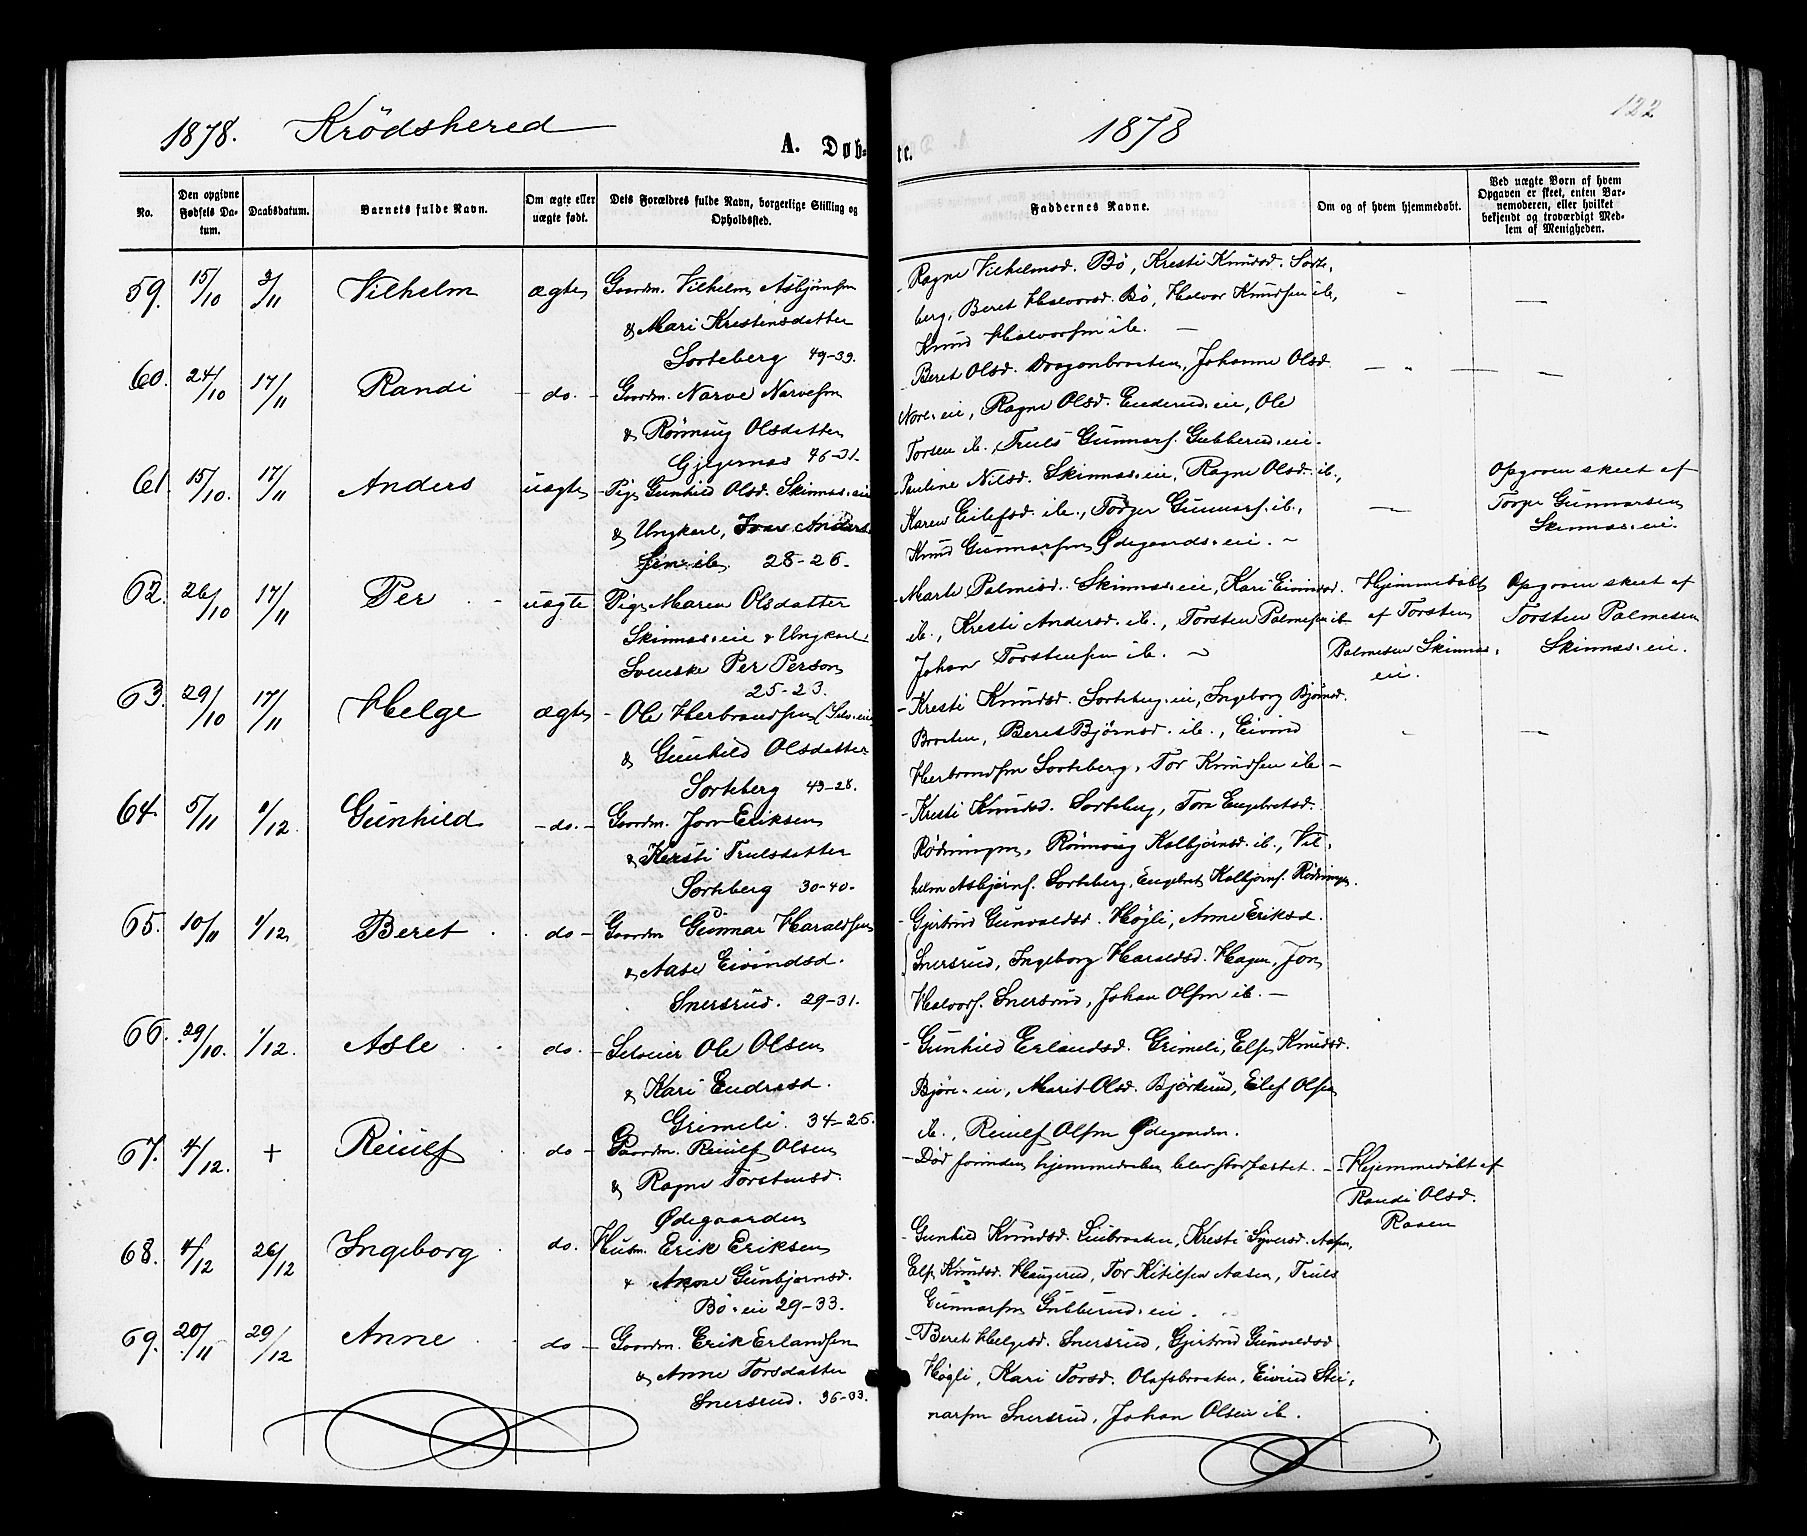 1878. Krødsherred
A. Døb-
te.
1878
122
No.
Den opgivne Fødsels Da-
tum.
Daabsdatum.
Barnets fulde Navn.
Om ægte eller
uægte født.
Dets Forældres fulde Navn, borgerlige Stilling og
Opholdssted.
Faddernes Navne.
Om og af hvem hjemmedøbt.
Ved uægte Børn af hvem
Opgaven er skeet, enten Bar-
nemoderen, eller hvilket
bekjendt og troværdigt Med-
lem af Menigheden.
59. 15/10 3/11 Vilhelm ægte Gaardm. Vilhelm Asbjørnsen
& Mari Kristensdatter
Sorteberg 49-39.
Ragne Vilhelmsd. Bø, Kresti Knudsd. Sorte-
berg, Beret Halvorsd. Bø, Halvor Knudsen ib.,
Knud Halvorsen ib. —
60. 24/10 17/11 Randi - do. - Gaardm. Narve Narvesen
& Rønnaug Olsdatter
Gjegernas 46-31.
- Beret Olsd. Dragonbraaten, Johanne Olsd.
Nore. eie, Ragne Olsd. Enderud. eie, Ole
Torsen ib., Truls Gunnars. Gubberud. eie.
61. 15/10. 17/11 Anders uægte - Pige Gunhild Olsd. Skinnæs. eie
& Ungkarl, Iver Anders-
sen ib. 28-26.
- Pauline Nilsd. Skinnæs. eie, Ragne Olsd. ib.,
Karen Eilefsd. ib., Torger Gunnars. ib.,
Knud Gunnarsen Ødegaards. eie. -
Opgaven skeet af
Torger Gunnarsen
Skinnæs. eie.
62. 26/10 17/11 Per uægte Pige Maren Olsdatter
Skinnæs. eie & Ungkarl
Svenske Per Person
25-23.
- Marte Palmesd. Skinnæs. eie, Kari Eivindsd.
ib., Kresti Andersd. ib., Torsten Palmesen ib.
Johan Torstensen ib. -
Hjemmedøbt
af Torsten
Palmesen Skinnæs.
eie.
Opgaven skeet af
Torsten Palmesen
Skinnæs. eie.
63. 29/10 17/11 Helge ægte - Ole Herbrandsen (Selv. eie
& Gunhild Olsdatter
Sorteberg 43-28.
- Kresti Knudsd. Sorteberg. eie, Ingeborg Bjørnsd.
Braaten, Beret Bjørnsd. ib., Eivind
Herbrandsen Sorteberg, Tor Knudsen ib. -
64. 5/11 1/12. Gunhild - do. - Gaardm. Jon Eriksen
& Kersti Trulsdatter
Sorteberg 30-40.
- Kresti Knudsd. Sorteberg, Tora Engebretsd.
Rødningen, Rønnoug Kolbjørnsd. ib., Vil-
helm Asbjørns. Sorteberg, Engebret Kolbjørns. Rødningen.
65. 10/11 1/12. Beret do - Gaardm Gunnar Haraldsen
& Aase Eivindsd.
Snersrud. 29-31.
- Gjertrud Gunvaldsd. Høgli, Anne Eriksd.
Snersrud, Ingeborg Haraldsd. Hagen, Jon
Halvors. Snersrud, Johan Olsen ib. —
66. 29/10. 1/12. Asle do. - Selveier Ole Olsen
& Kari Endresd.
Grimeli. 34-26.
- Gunhild Erlandsd. Grimeli, Else Knudsd.
Bjøre. eie, Marit Olsd. Bjørkerud, Eilef Olsen
ib., Reiulf Olsen Ødegaarden.
67. 4/12. + Reiulf do - Gaardm. Reiulf Olsen
& Ragne Torstensd.
Ødegaarden
- Død forinden hjemmedaaben blev stadfæstet. -
Hjemmedøbt af
Randi Olsd.
Raaen
68. 4/12 26/12 Ingeborg do. Husm. Erik Eriksen
& Anne Gunbjørnsd.
Bø. eie 29-33.
- Gunhild Knudsd. Liubraaten, Kresti Syversd. Aasen,
Else Knudsd. Haugerud, Tor Kitilsen Aasen, Truls
Gunnarsen Gubberud. eie.
69. 20/11 29/12 Anne do - Gaardm. Erik Erlandsen
& Anne Torsdatter
Snersrud. 36-33.
- Beret Helgesd. Snersrud, Gjertrud Gunvaldsd.
Høgli, Kari Torsd. Olafsbraaten, Eivind Stei-
narsen Snersrud, Johan Olsen ib.